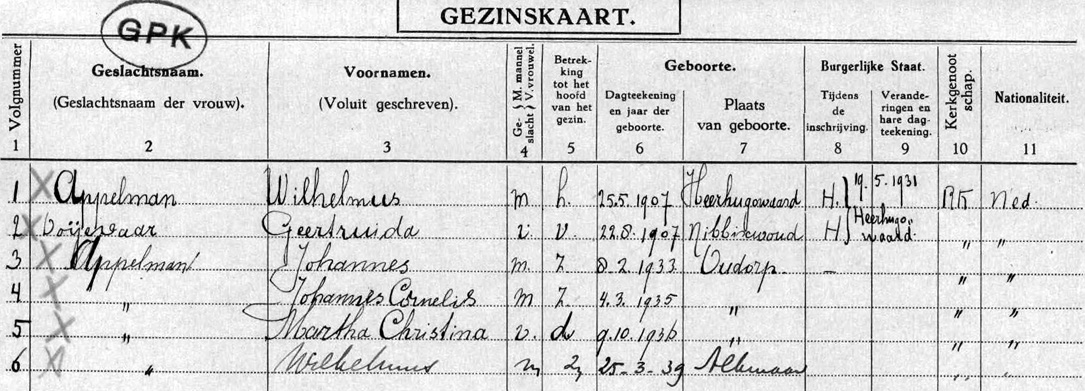 GEZINSKAART.
GPK
Volgnummer
Geslachtsnaam.
(Geslachtsnaam der vrouw).
Voornamen.
(Voluit geschreven).
Ge- slacht { M. mannel V. vrouwel.
Betrek-
king
tot het
hoofd
van het
gezin.
Geboorte.
Dagteekening
en jaar der
geboorte.
Plaats
van geboorte.
Burgerlijke Staat.
Tijdens
de
inschrijving.
Verande-
ringen en
hare dag-
teekening.
Kerkgenoot
schap.
Nationaliteit.
1 2 3 4 5 6 7 8 9 10 11
1 X Appelman Wilhelmus m h. 25.5.1907 Heerhugowaard H. } 19.5.1931 RK Ned.
2 X Geertruida v. v. 22.8.1907 Nibbixwoud H } Heerhugo waard. " "
3 X Appelman Johannes m. Z 8.2.1933 Oudorp - " "
4 X " Johannes Cornelis m Z 4.3.1935 " " "
5 X " Martha Christina v. d 9.10.1936 " " "
6 X " Wilhelmus m z 25-3-39 Alkmaar " "